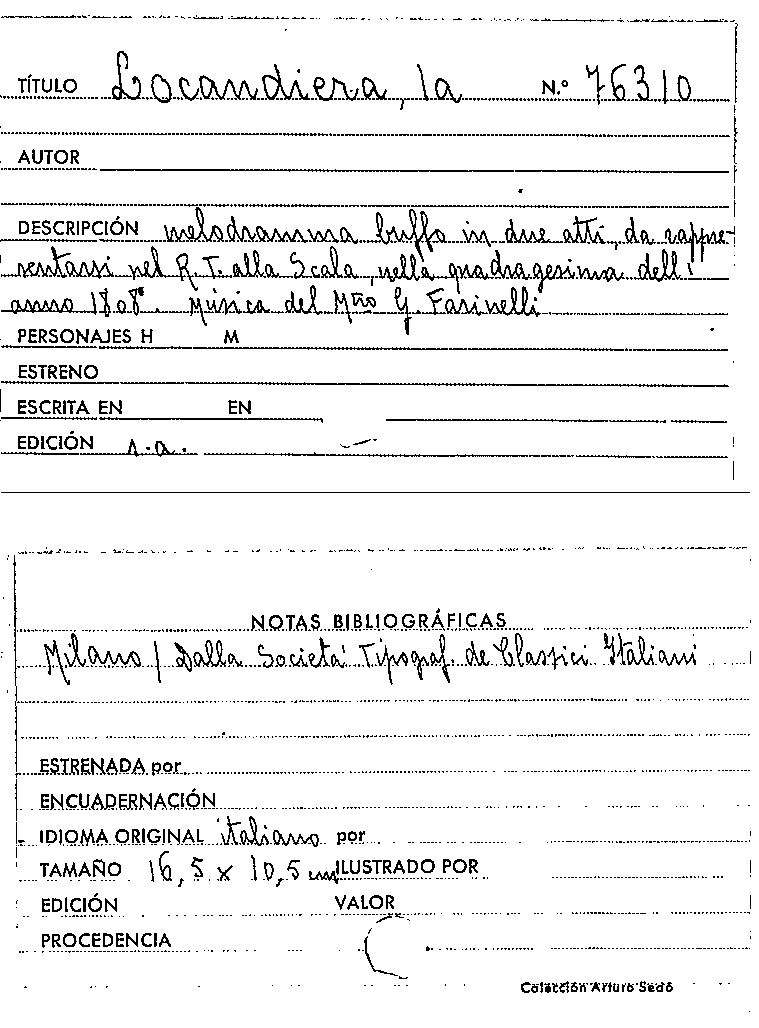 TÍTULO Locandiera, la N.º 76310
AUTOR
DESCRIPCIÓN melodramma buffo in due atti, da rappre-
sentarsi nel R. T. alla Scala, nella quadragesima dell'
anno 1808". Música del Mtro G. Farinelli
PERSONAJES H M
ESTRENO
ESCRITA EN EN
EDICIÓN s.a.
NOTAS BIBLIOGRÁFICAS
Milano / Dalla Societá Tipograf. de Classici Italiani
ESTRENADA por
ENCUADERNACIÓN
IDIOMA ORIGINAL italiano por
TAMAÑO 16,5 x 10,5 cm ILUSTRADO POR
EDICIÓN VALOR
PROCEDENCIA
Colección Arturo Sedó